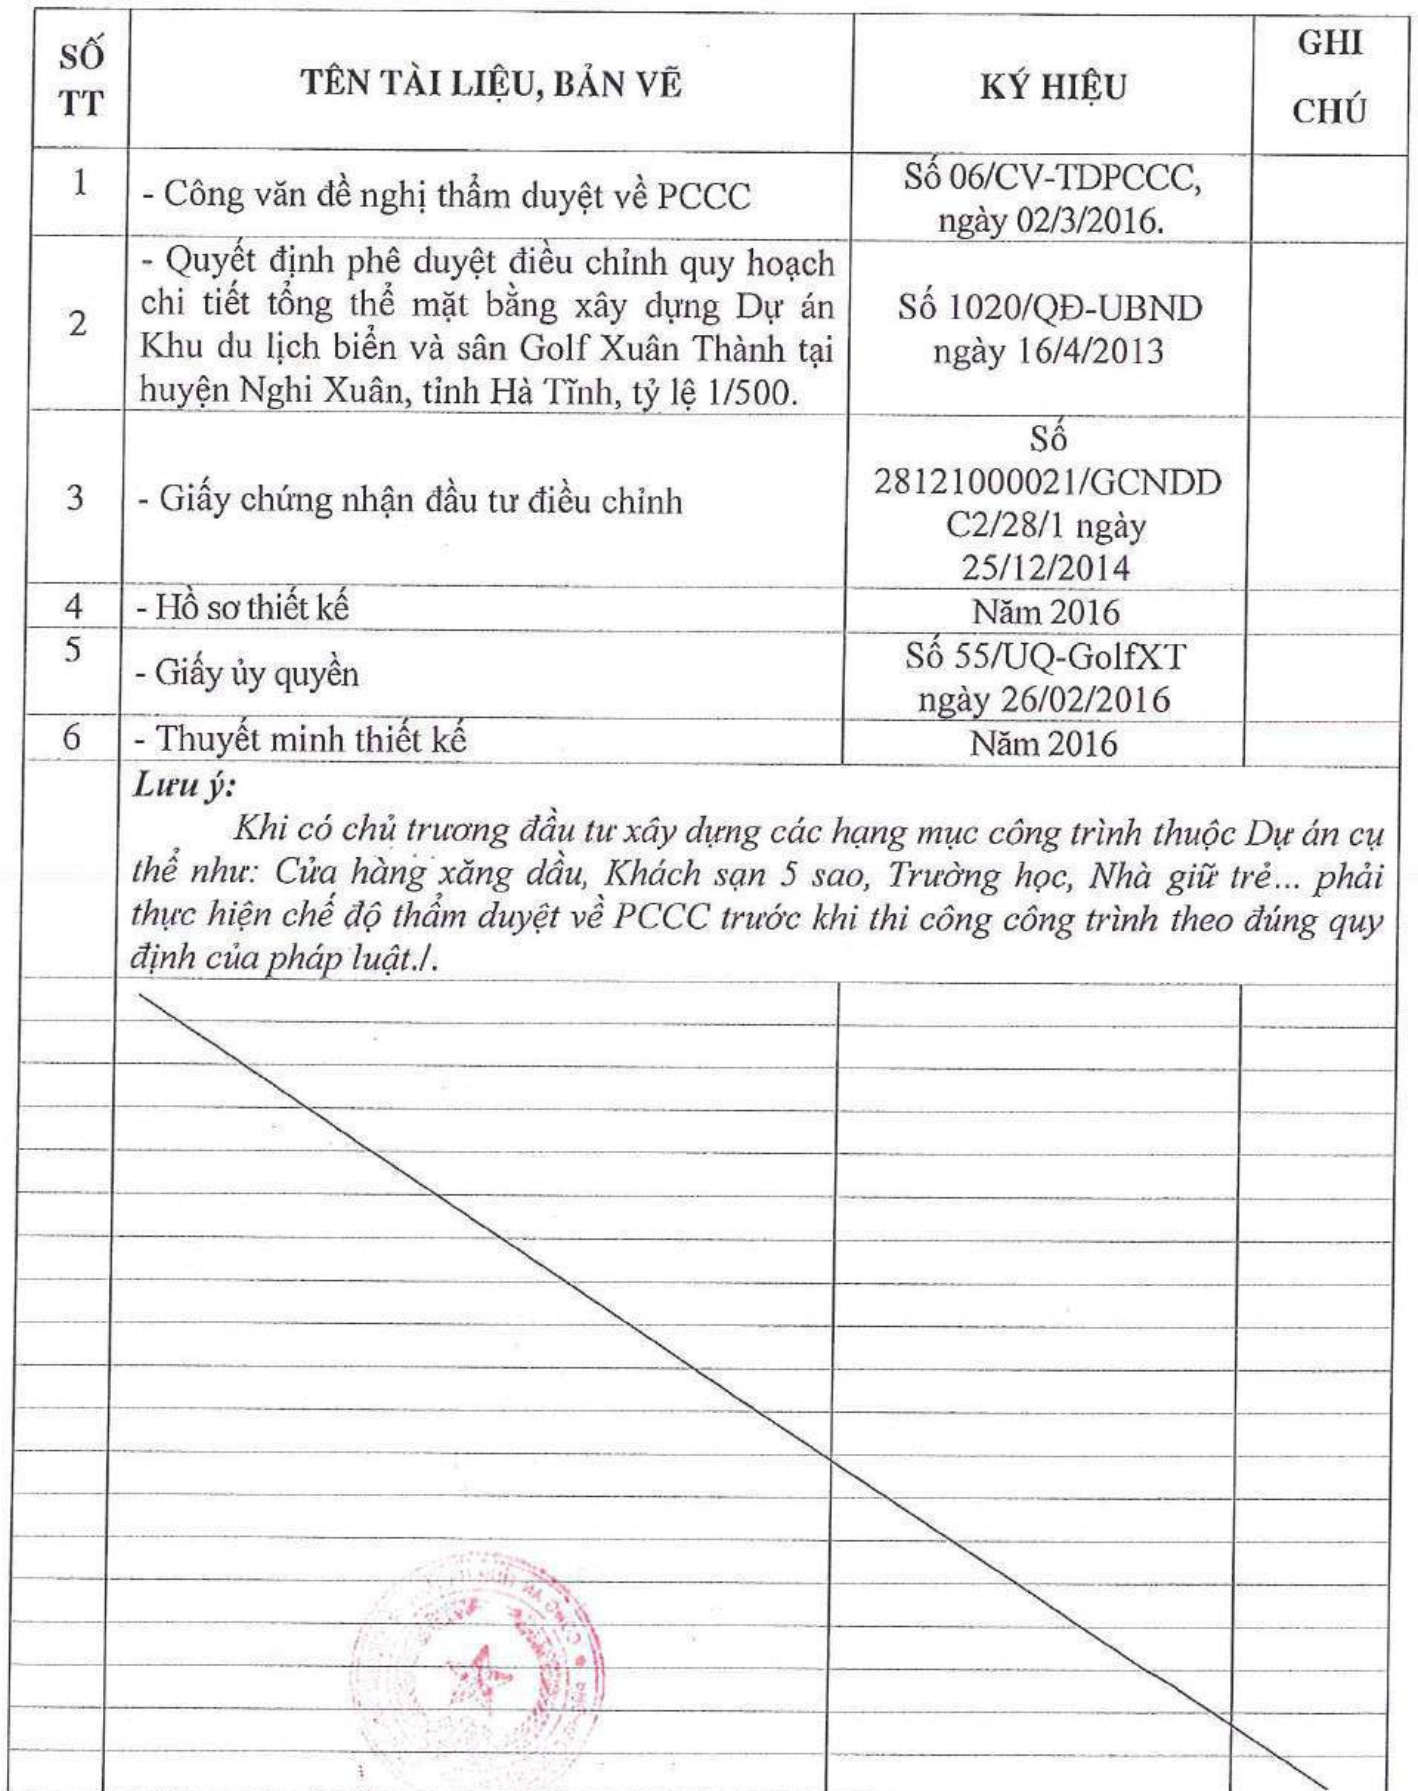 SỐ TT
TÊN TÀI LIỆU, BẢN VẼ
KÝ HIỆU
GHI CHÚ
1
- Công văn đề nghị thẩm duyệt về PCCC
Số 06/CV-TDPCCC,
ngày 02/3/2016.
2
- Quyết định phê duyệt điều chỉnh quy hoạch
chi tiết tổng thể mặt bằng xây dựng Dự án
Khu du lịch biển và sân Golf Xuân Thành tại
huyện Nghi Xuân, tỉnh Hà Tĩnh, tỷ lệ 1/500.
Số 1020/QĐ-UBND
ngày 16/4/2013
3
- Giấy chứng nhận đầu tư điều chỉnh
Số
28121000021/GCNDD
C2/28/1 ngày
25/12/2014
4
- Hồ sơ thiết kế
Năm 2016
5
- Giấy ủy quyền
Số 55/UQ-GolfXT
ngày 26/02/2016
6
- Thuyết minh thiết kế
Năm 2016
Lưu ý:
Khi có chủ trương đầu tư xây dựng các hạng mục công trình thuộc Dự án cụ
thể như: Cửa hàng xăng dầu, Khách sạn 5 sao, Trường học, Nhà giữ trẻ... phải
thực hiện chế độ thẩm duyệt về PCCC trước khi thi công công trình theo đúng quy
định của pháp luật./.